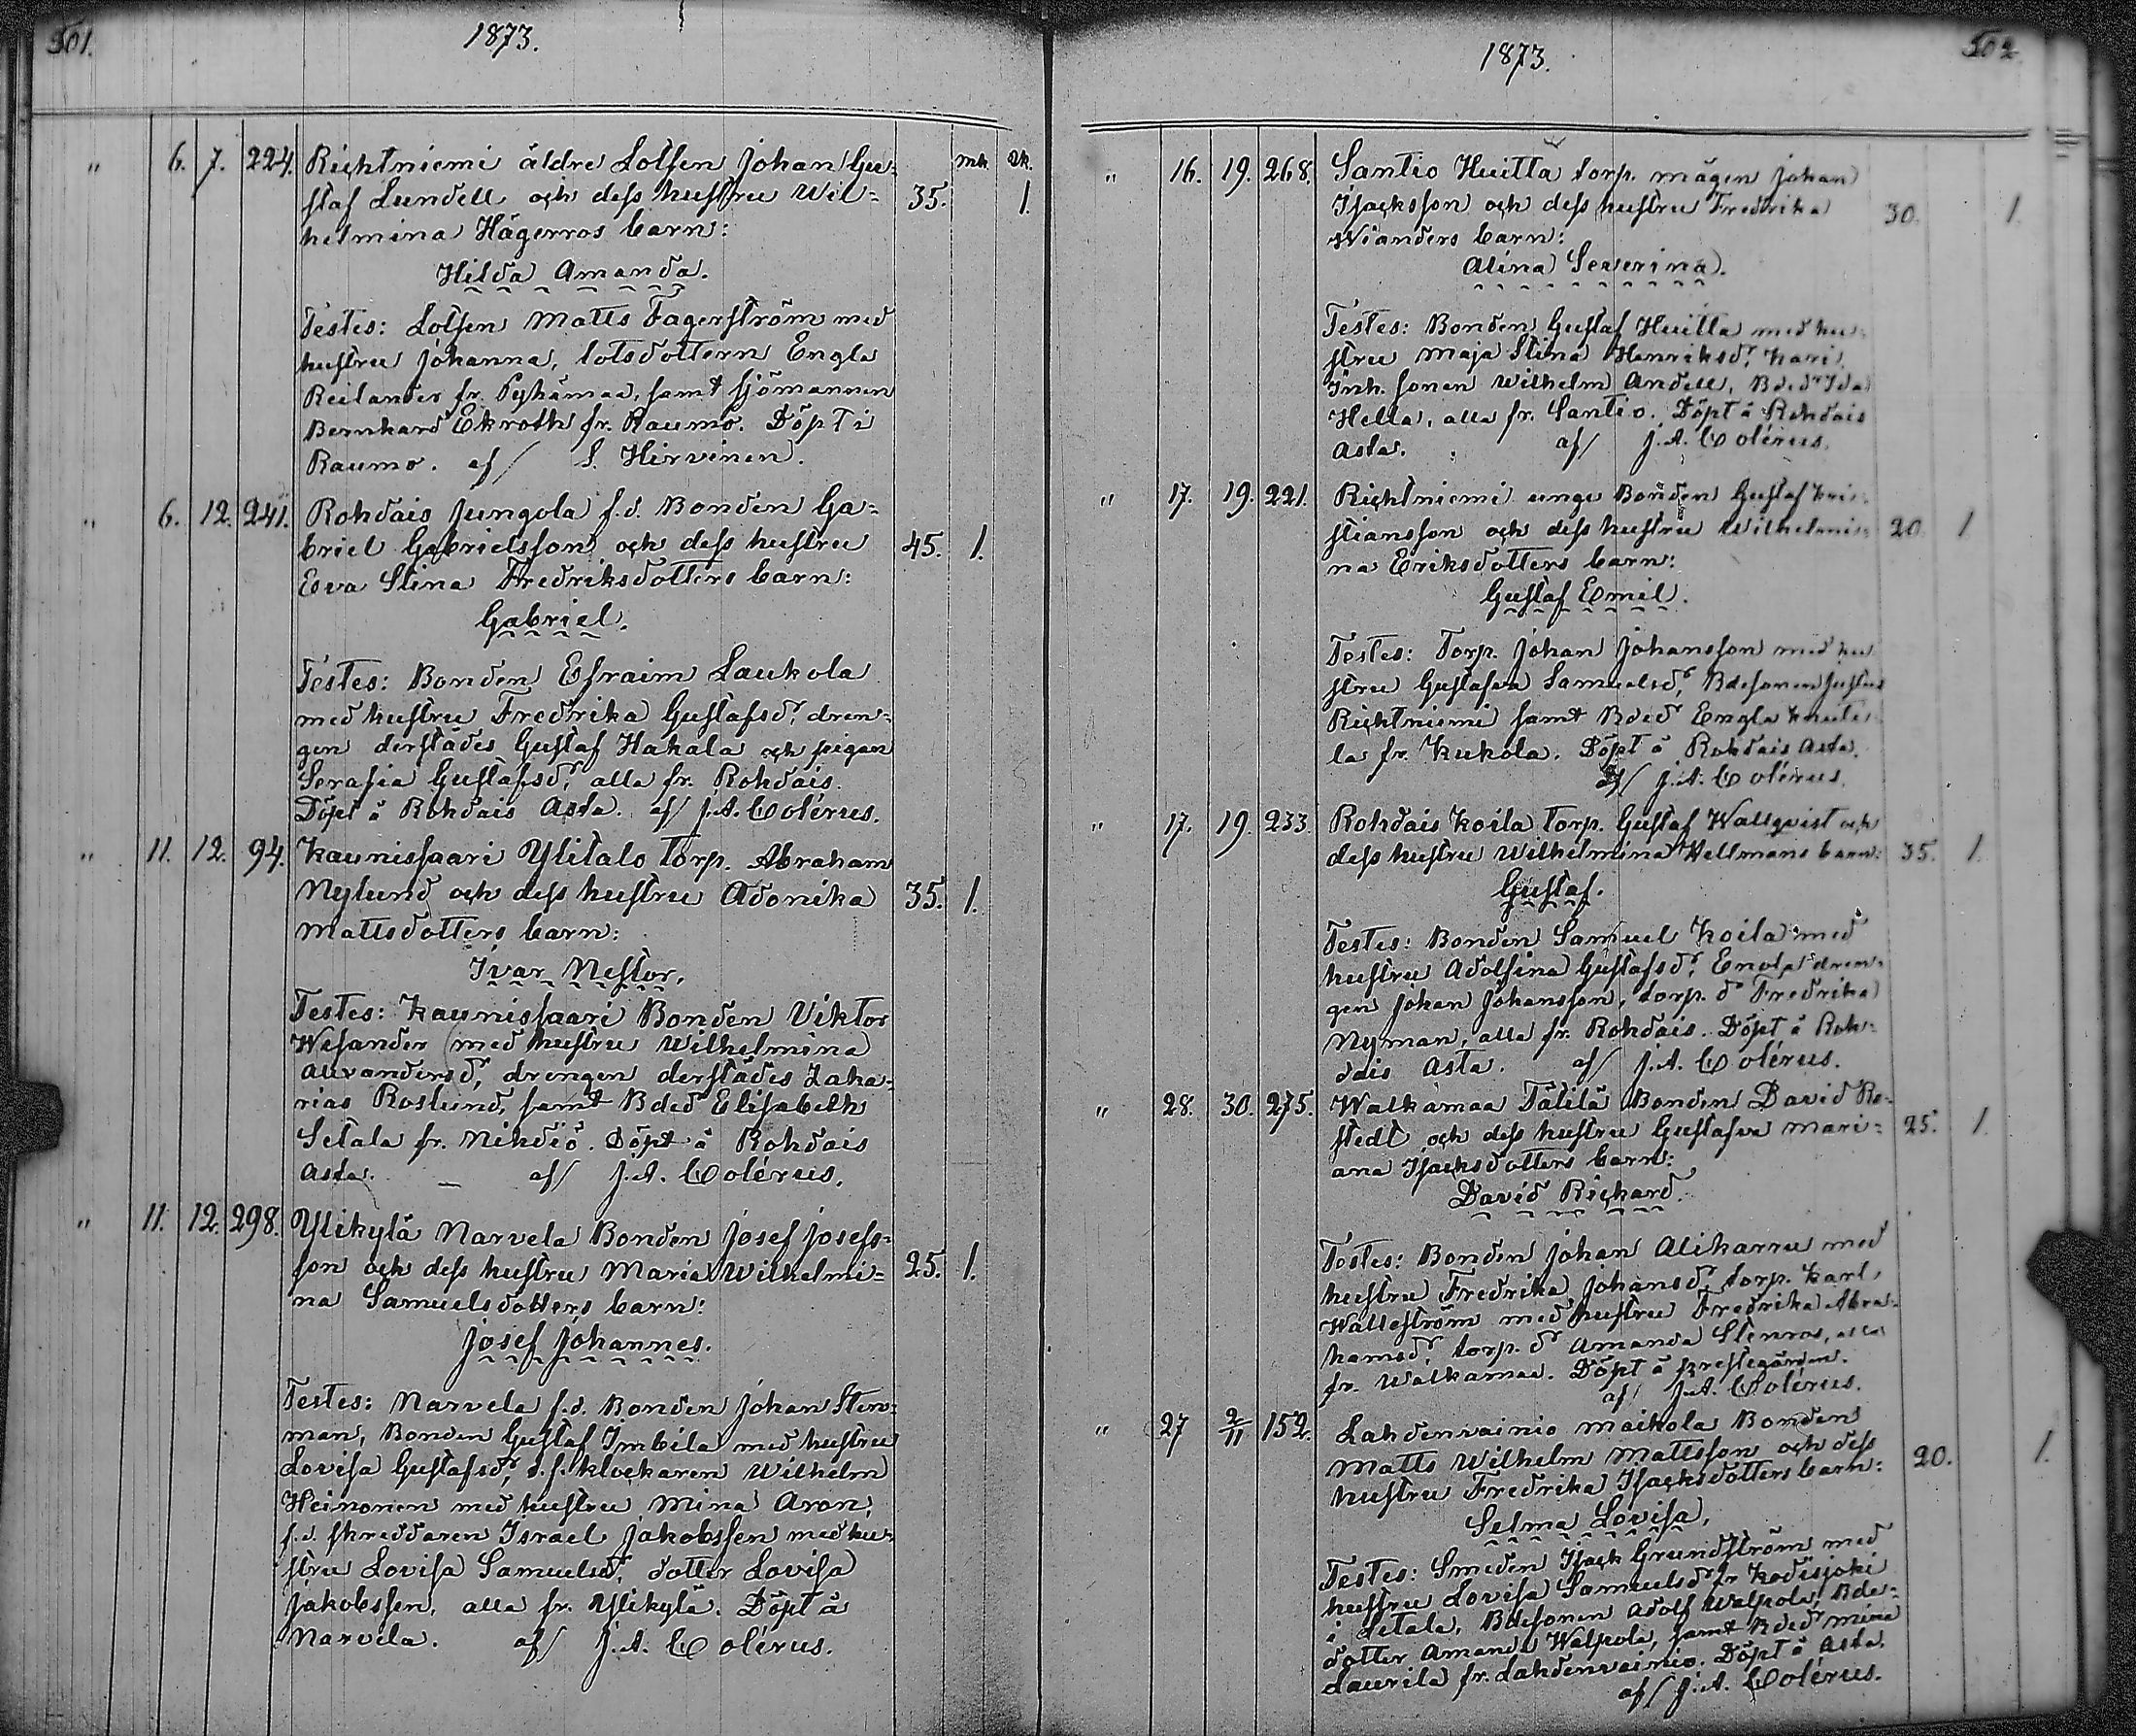 501.
1873.
mk. qk.
" 6. 7. 224. Richtniemi äldre Lotsen Johan Gu-
staf Lundell och dess hustru Wil- 35. 1.
helmina Hägerros barn:
Hilda Amanda.
Testes: Lotsen Matts Fagerström med
hustru Johanna, lotsdottern Engla
Reilander fr. Pyhämaa, samt sjömannen
Bernhard Ekroth fr. Raumo. Döpt i
Raumo. af/ S. Hirvinen.
" 6. 12. 241. Rohdais Jungola f.d. Bonden Ga-
briel Gabrielsson och dess hustru 45. 1.
Eva Stina Fredriksdotters barn:
Gabriel.
Testes: Bonden Efraim Laukola
med hustru Fredrika Gustafsdr, dren-
gen derstädes Gustaf Hakala och pigan
Serafia Gustafsdr, alla fr. Rohdais.
Döpt å Rohdais Asta. af/ J.A. Colérus.
" 11. 12. 94. Kaunissaari Ylitalo Torp. Abraham
Nylund och dess hustru Adonika 35. 1.
Mattsdotters barn:
Ivar Nestor.
Testes: Kaunissaari Bonden Viktor
Wesander med hustru Wilhelmina
Alexandersdr, drengen derstädes Zaka-
rias Roslund, samt Bdedr Elisabeth
Setala fr. Nihdiö. Döpt å Rohdais
Asta. – af/ J.A. Colérus.
" 11. 12. 298. Ylikylä Narvela Bonden Josef Josefs-
son och dess hustru Maria Wilhelmi- 25. 1.
na Samuelsdotters barn:
Josef Johannes.
Testes: Narvela f.d. Bonden Johan Sten-
man, Bonden Gustaf Imbila med hustru
Lovisa Gustafsdr, klockaren Wilhelm
Heinonen med hustru Mina Aron,
f.d. skreddaren Israel Jakobsson med hu-
stru Lovisa Samuelsdr, dotter Lovisa
Jakobsson, alla fr. Ylikylä. Döpt å
Narvela. af/ J.A. Colérus.
502
1873.
" 16. 19. 268. Santio Huitta torp. mågen Johan
Isacksson och dess hustru Fredrika 30. 1.
Wianders barn:
Alina Severina.
Testes: Bonden Gustaf Huitta med hu-
stru Maja Stina Henriksdr Kari,
Inh. sonen Wilhelm Andell, Bdedr Ida
Hella, alla fr. Santio. Döpt å Rohdais
Asta. af/ J.A. Colérus.
" 17. 19. 221. Richtniemi unge Bonden Gustaf Kri-
stiansson och dess hustru Wilhelmi- 20. 1
na Eriksdotters barn:
Gustaf Emil.
Testes: Torp. Johan Johansson med hu
stru Gustafva Samuelsdr, Bdesonen Justus
Richtniemi samt Bdedr Engla Knuti-
la fr. Kukola. Döpt å Rohdais Asta.
af/ J.A. Colérus.
" 17. 19. 233. Rohdais Koila Torp. Gustaf Wallqvist och
dess hustru Wilhelmina Wellmans barn: 35. 1.
Gustaf.
Testes: Bonden Samuel Koila med
hustru Adolfina Gustafsdr, dren-
gen Johan Johansson, torp. dr Fredrika
Nyman, alla fr. Rohdais. Döpt å Roh-
dais Asta. af/ J.A. Colérus.
" 28. 30. 275. Walkamaa Tätilä Bonden David Ro-
stedt och dess hustru Gustafva Mari- 25. 1.
ana Isacksdotters barn:
David Richard.
Testes: Bonden Johan Alikarru med
hustru Fredrika Johansdr, torp. Karl
Walleström med hustru Fredrika Abra-
hamsdr, torp. dr Amanda Stenros, alla
fr. Walkamaa. Döpt å prestegården.
af/ J.A. Colérus.
" 27 2/11 152. Lahdenvainio Maikola Bonden
Matts Wilhelm Mattsson och dess 20. 1.
hustru Fredrika Isacksdotters barn:
Selma Lovisa.
Testes: Smeden Isack Grundström med
hustru Lovisa Samuelsdr fr Kodisjoki
i Letala, Bdesonen Adolf Walpola, Bde-
dotter Amanda Walpola, samt Bdedr Mina
Laurila fr. Lahdenvainio. Döpt å Asta.
af/ J.A. Colérus.